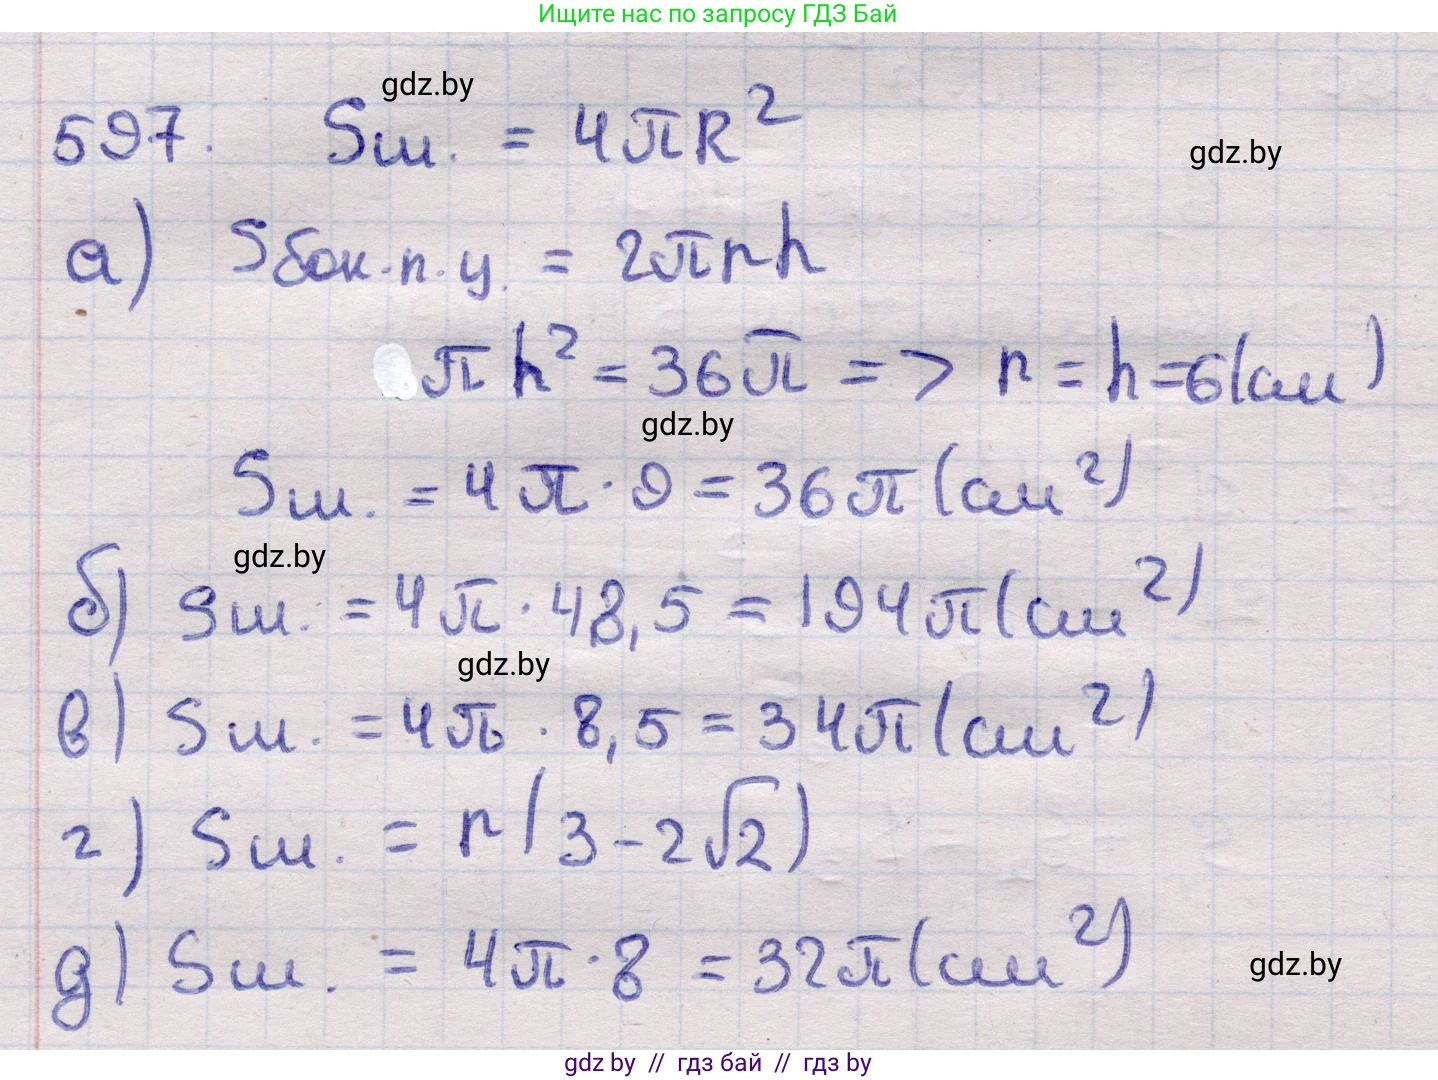 Ищите нас по запросу ГДЗ Бай
gdz.by
597. Sш. = 4πR²
gdz.by
а) Sбок.п.ц. = 2πrh
πh² = 36π => r = h = 6(см)
gdz.by
Sш. = 4π · 9 = 36π(см²)
gdz.by
б) Sш. = 4π · 48,5 = 194π(см²)
gdz.by
в) Sш. = 4π · 8,5 = 34π(см²)
г) Sш. = r(3-2√2)
д) Sш. = 4π · 8 = 32π(см²)
gdz.by
gdz by // гдз бай // гдз by